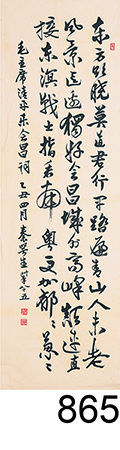 东方欲晓莫道君行早路遍青山人未老
风景这边独好会昌城外高峰颠连直
接东溟战士指看南粤更加郁郁葱葱
毛主席清平乐会昌词 乙丑四月秦咢生
865